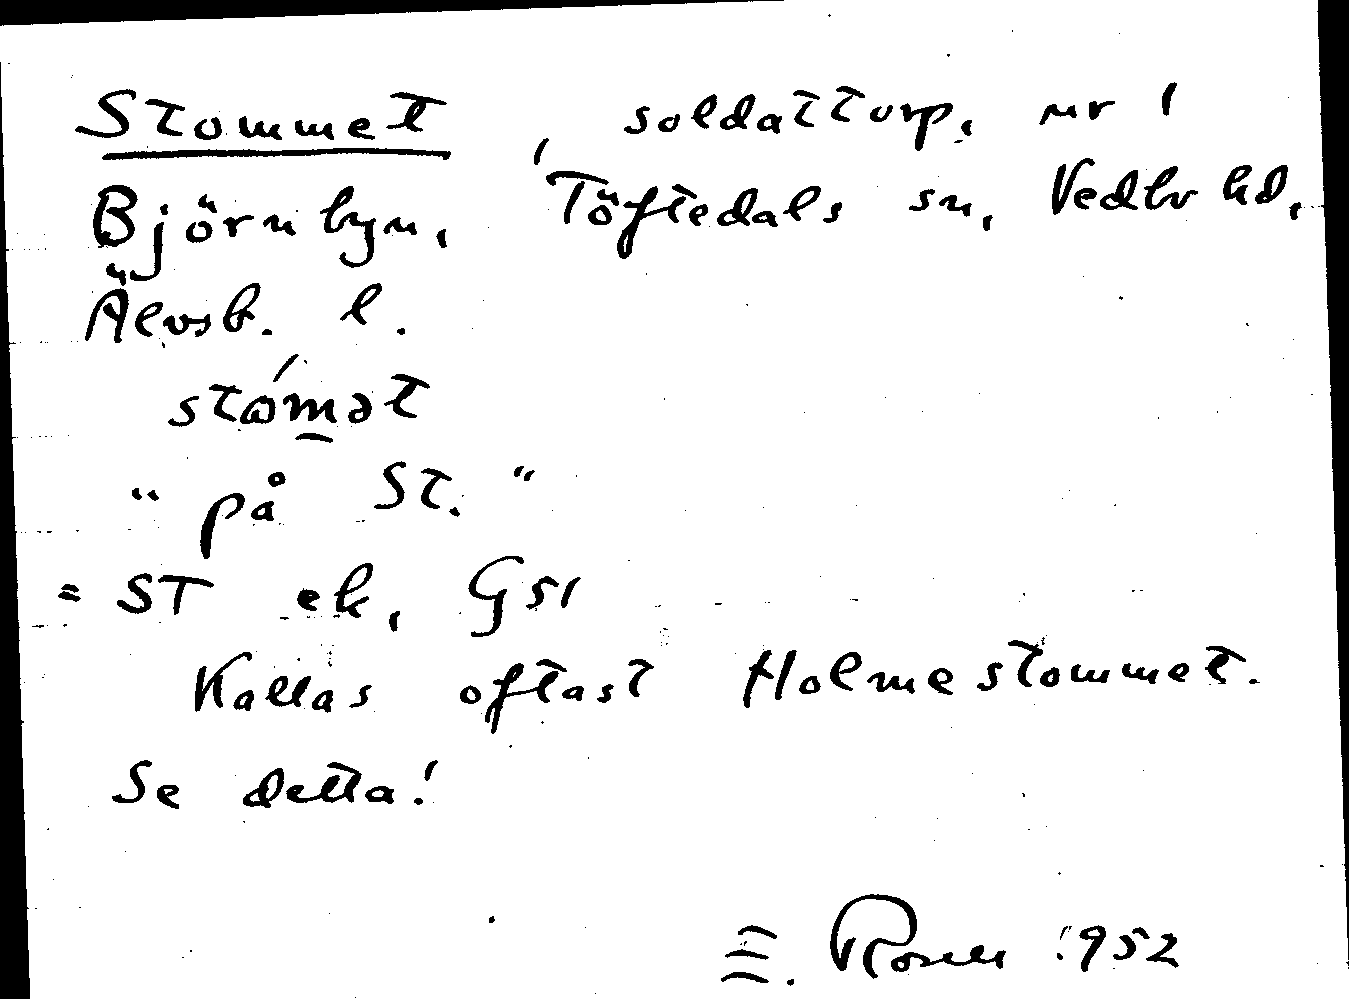 Stommet, soldattorp, nr 1
Björnbyn, Töftedals sn, Vedbo hd,
Älvsb. l.
stómət
"på St."
= ST ek, GS1
Kallas oftast Holmestommet.
Se detta!
E. Rosell 1952